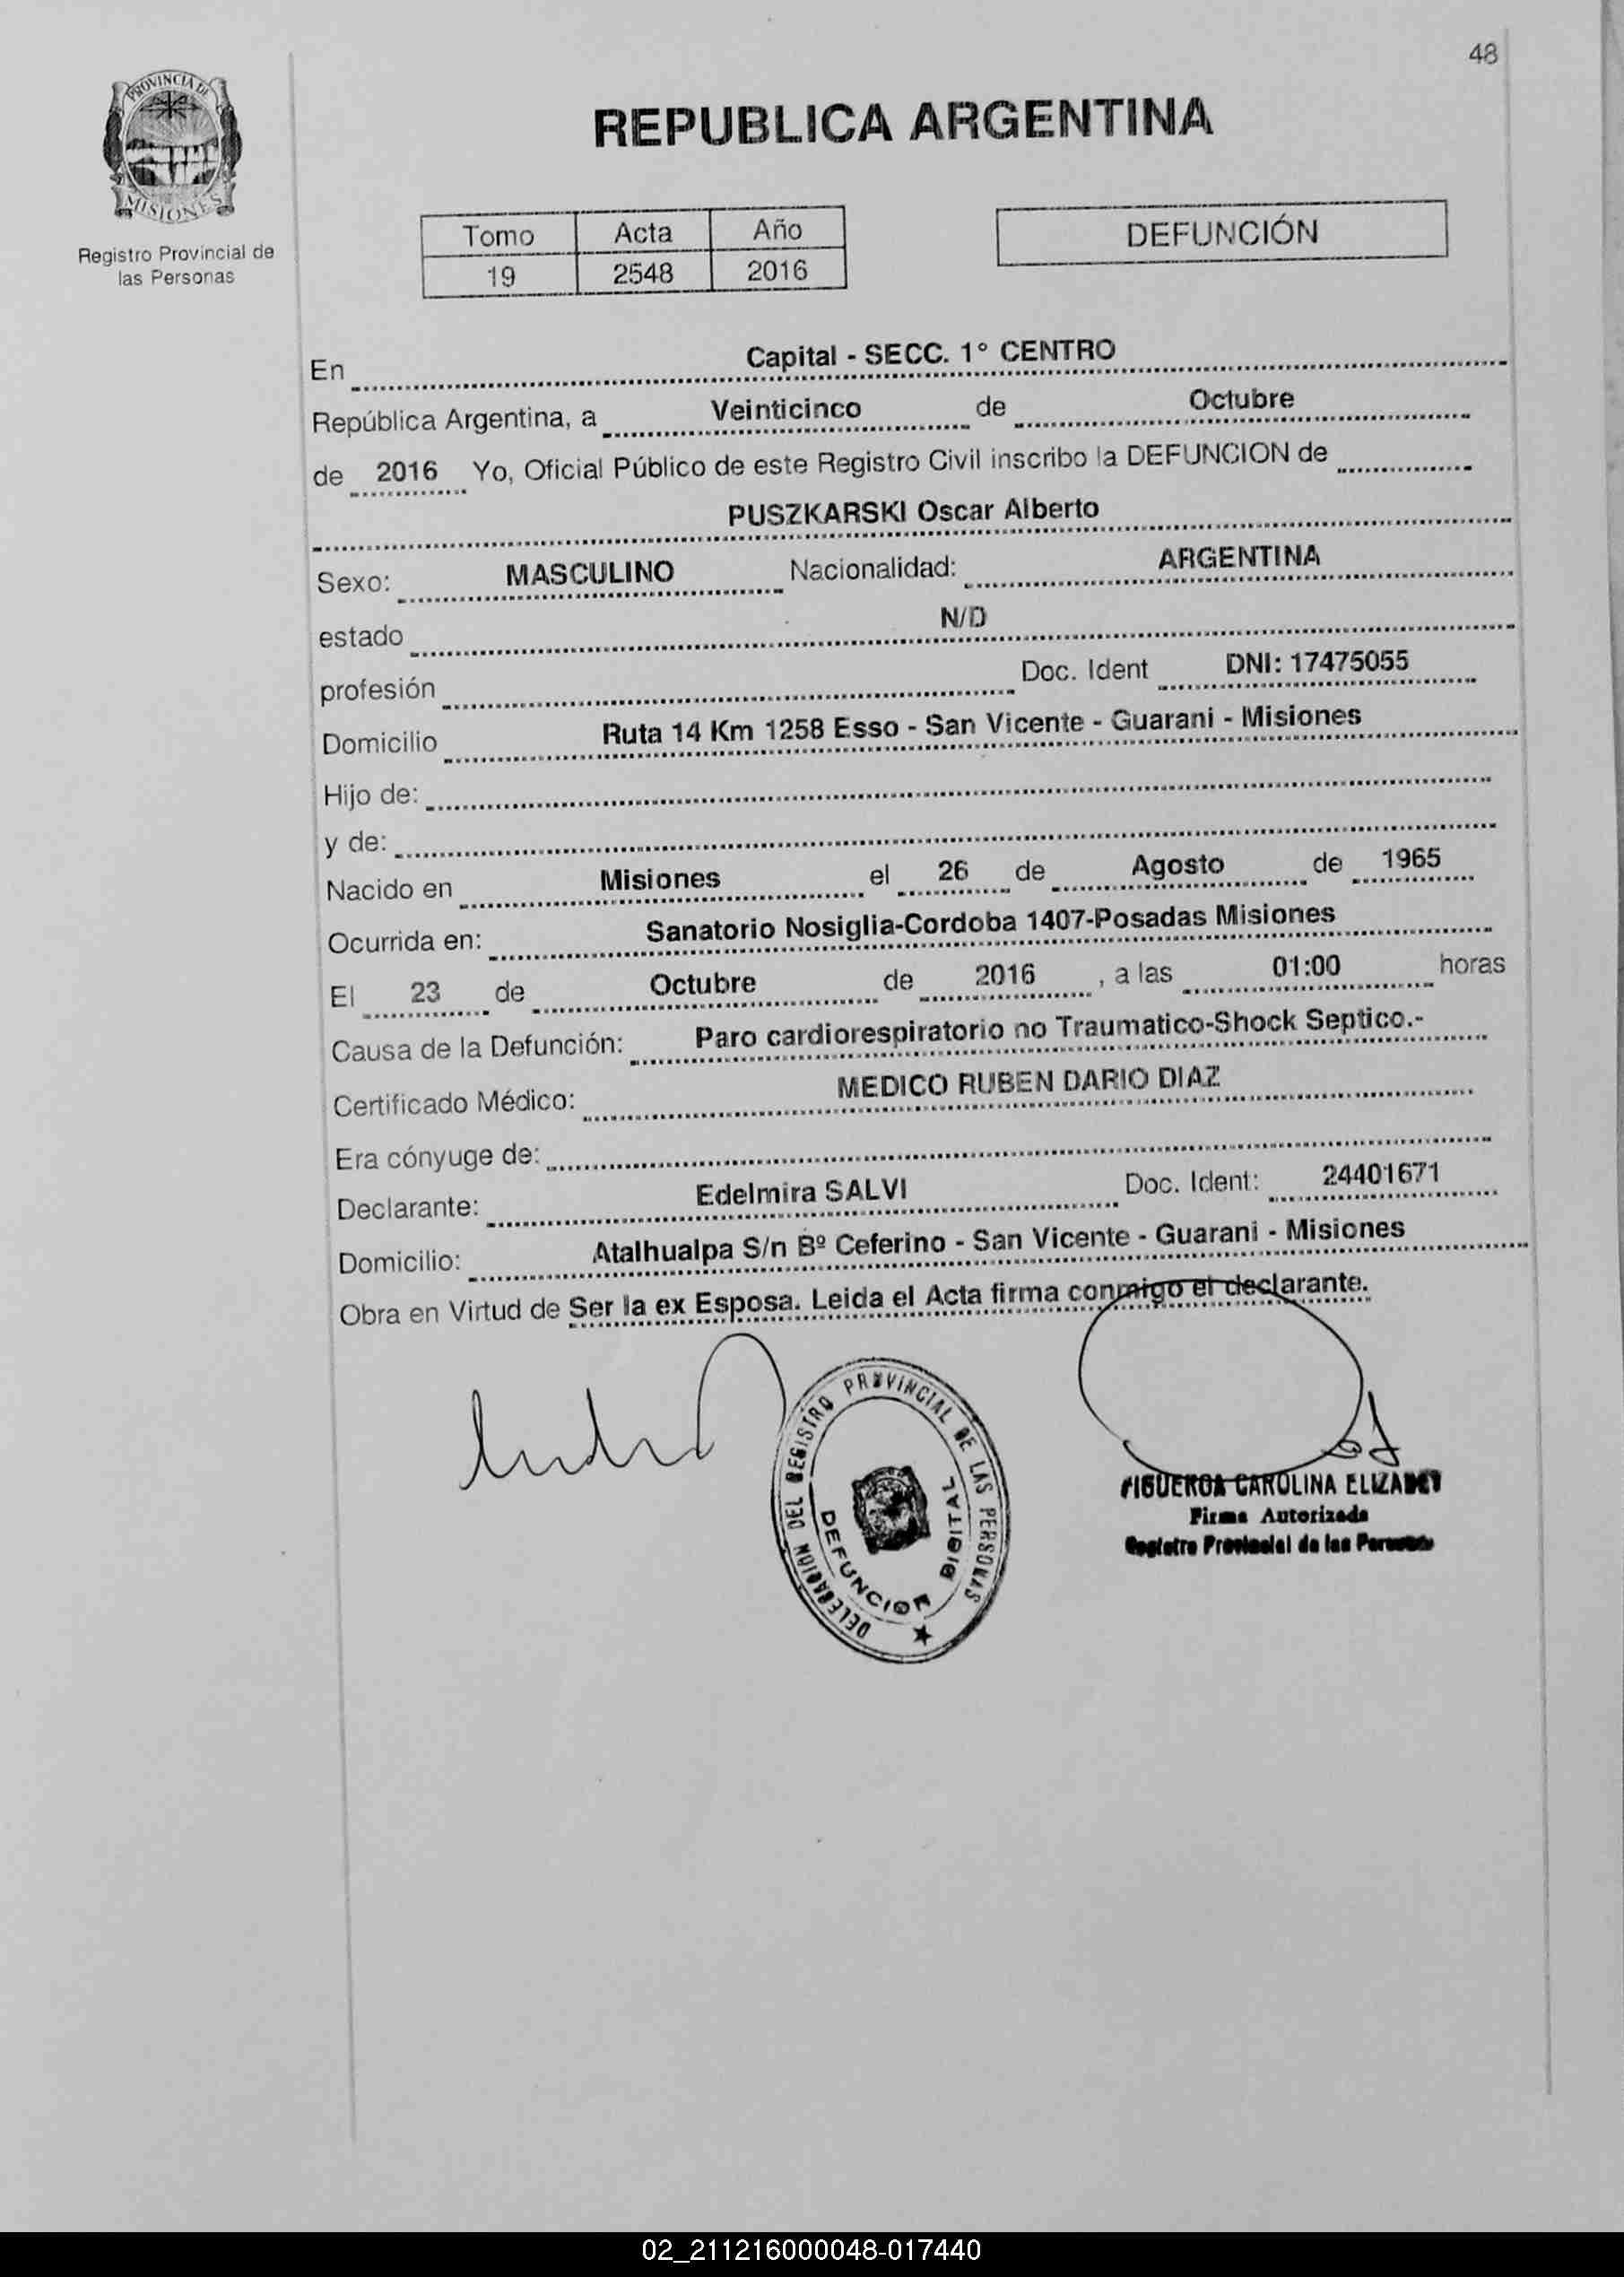 48
PROVINCIA DE
MISIONES
Registro Provincial de
las Personas
REPUBLICA ARGENTINA
Tomo Acta Año
19 2548 2016
DEFUNCIÓN
En Capital - SECC. 1° CENTRO
República Argentina, a Veinticinco de Octubre
de 2016 Yo, Oficial Público de este Registro Civil inscribo la DEFUNCION de
PUSZKARSKI Oscar Alberto
Sexo: MASCULINO Nacionalidad: ARGENTINA
estado N/D
profesión Doc. Ident DNI: 17475055
Domicilio Ruta 14 Km 1258 Esso - San Vicente - Guarani - Misiones
Hijo de:
y de:
Nacido en Misiones el 26 de Agosto de 1965
Ocurrida en: Sanatorio Nosiglia-Cordoba 1407-Posadas Misiones
El 23 de Octubre de 2016 , a las 01:00 horas
Causa de la Defunción: Paro cardiorespiratorio no Traumatico-Shock Septico.-
Certificado Médico: MEDICO RUBEN DARIO DIAZ
Era cónyuge de:
Declarante: Edelmira SALVI Doc. Ident: 24401671
Domicilio: Atalhualpa S/n Bº Ceferino - San Vicente - Guarani - Misiones
Obra en Virtud de Ser la ex Esposa. Leida el Acta firma conmigo el declarante.
DELEGACION DEL REGISTRO PROVINCIAL DE LAS PERSONAS
DEFUNCION DIGITAL
FIGUEROA CAROLINA ELIZABET
Firma Autorizada
Registro Provincial de las Personas
02_211216000048-017440